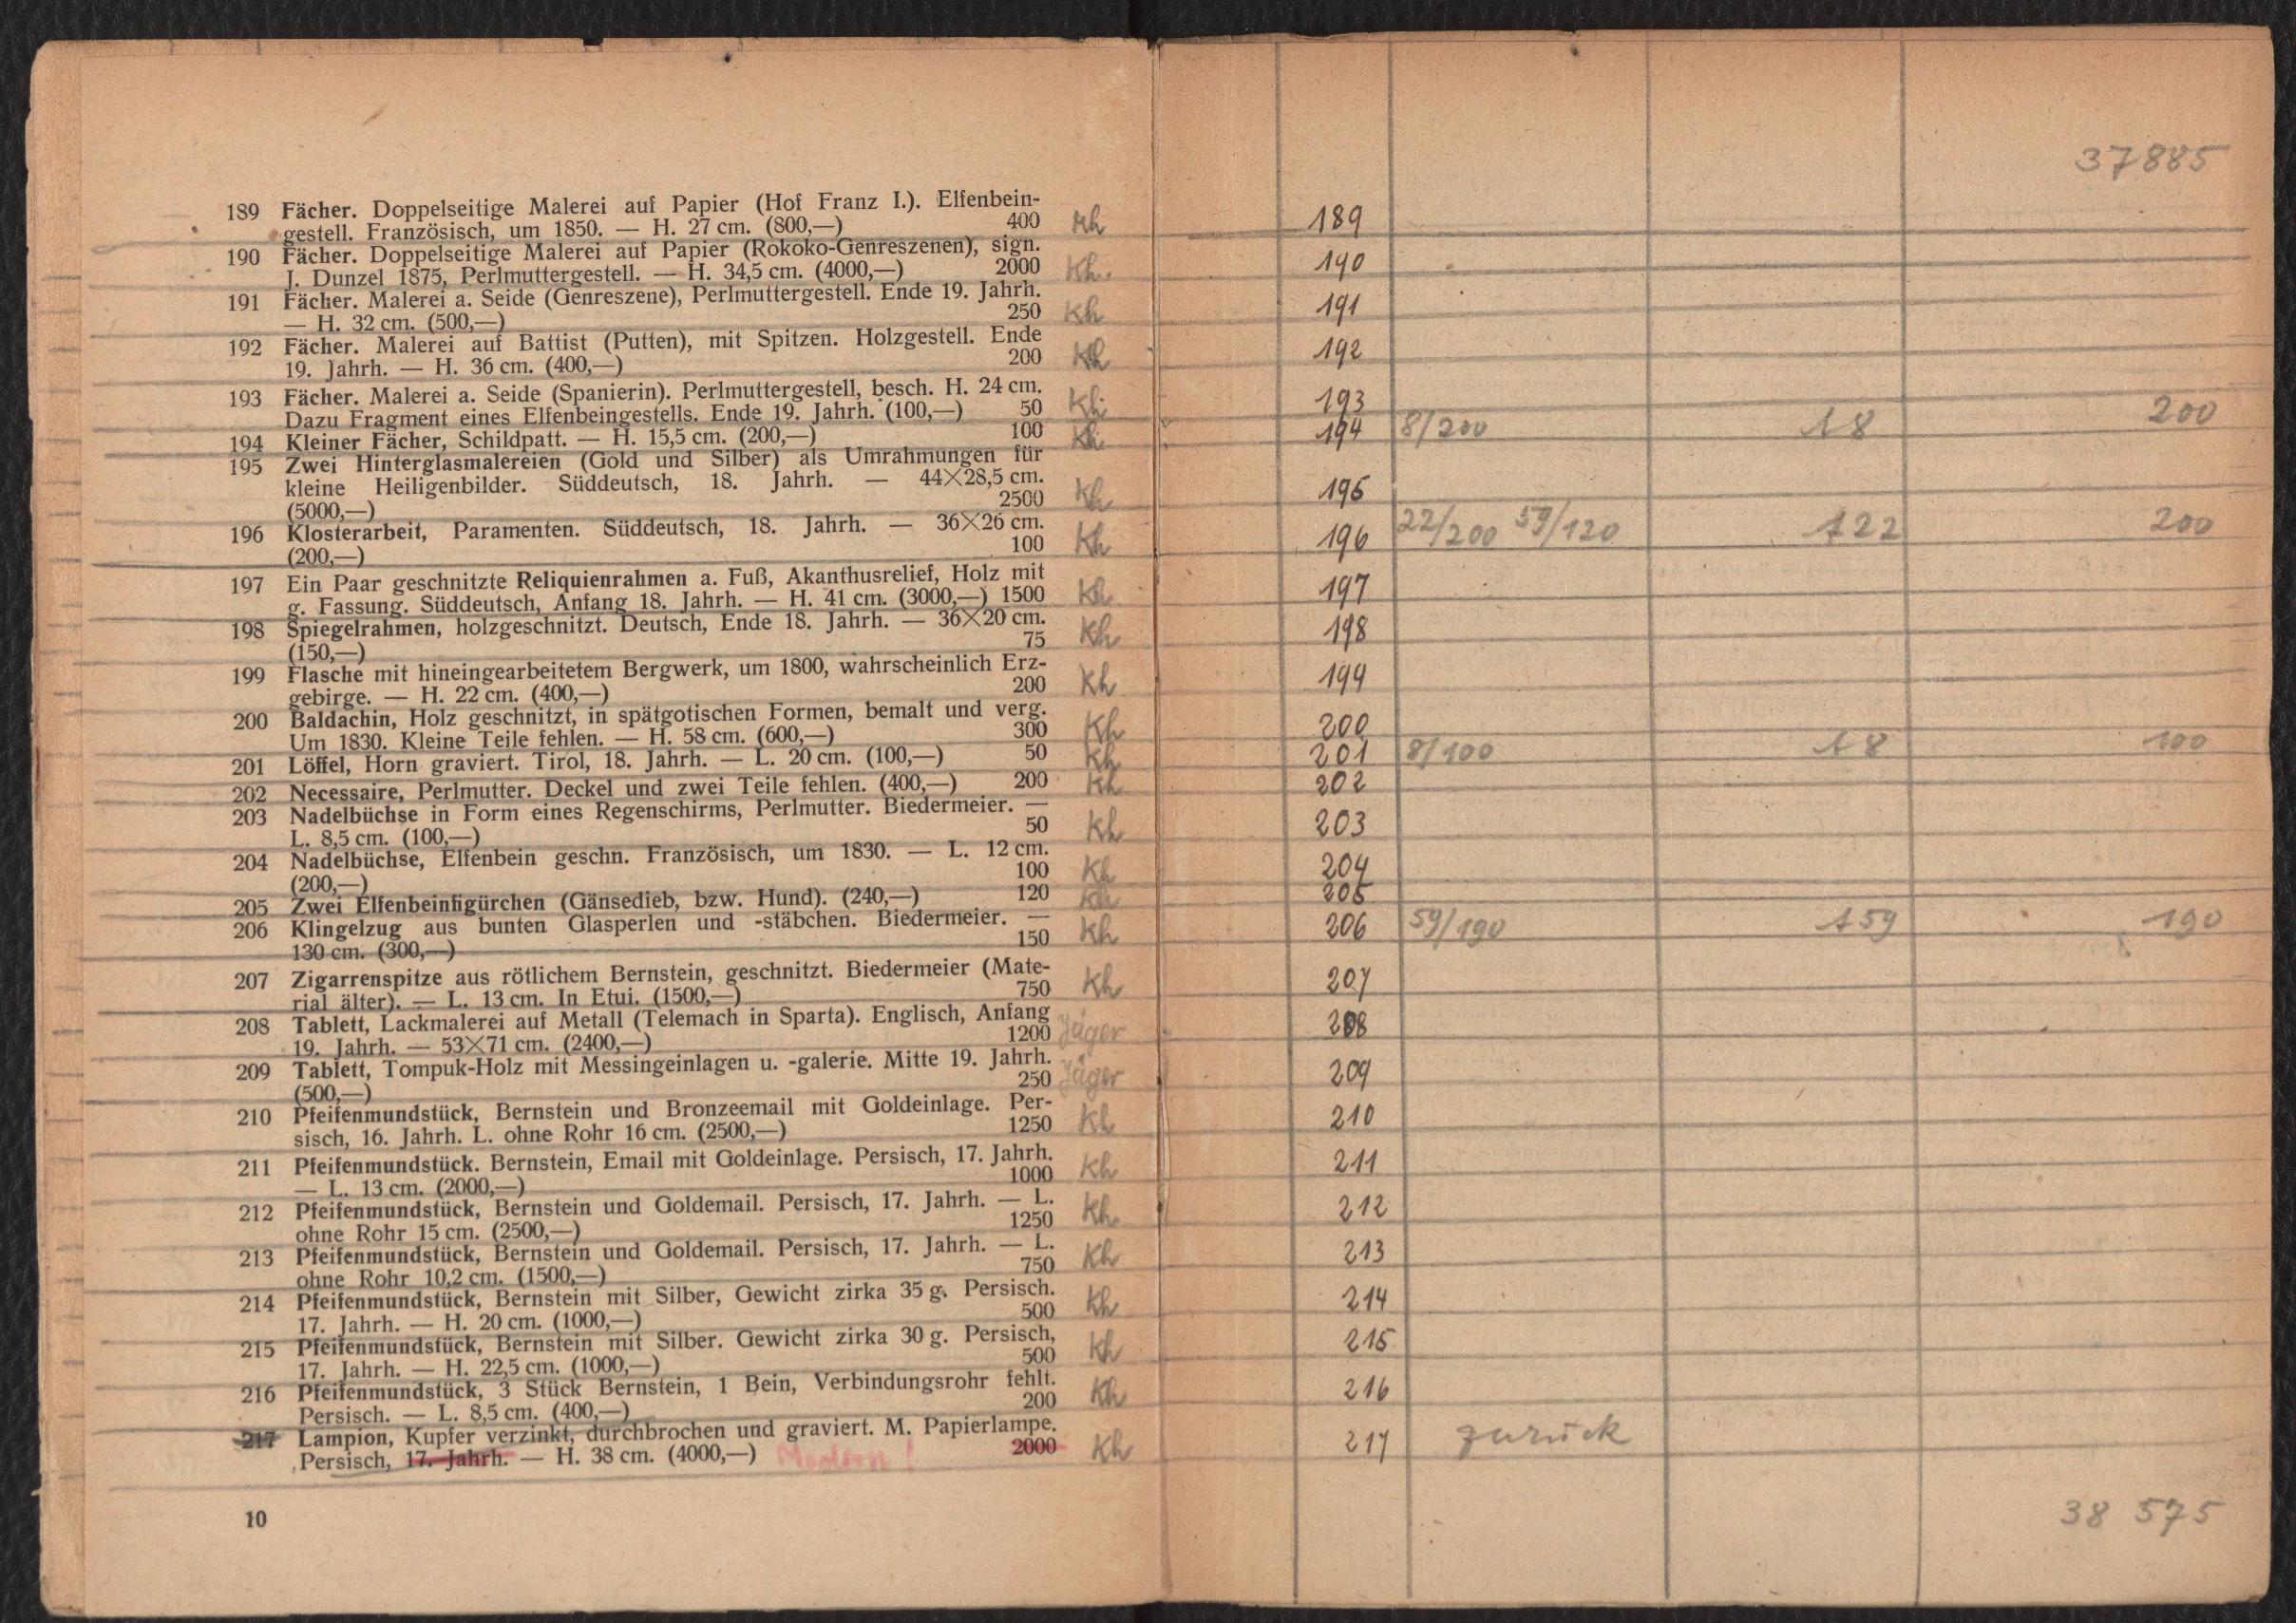 189 Fächer. Doppelseitige Malerei auf Papier (Hof Franz I.). Elfenbein-
gestell. Französisch, um 1850. — H. 27 cm. (800,—) 400 Kh
190 Fächer. Doppelseitige Malerei auf Papier (Rokoko-Genreszenen), sign.
J. Dunzel 1875, Perlmuttergestell. — H. 34,5 cm. (4000,—) 2000 Kh.
191 Fächer. Malerei a. Seide (Genreszene), Perlmuttergestell. Ende 19. Jahrh.
— H. 32 cm. (500,—) 250 Kh
192 Fächer. Malerei auf Battist (Putten), mit Spitzen. Holzgestell. Ende
19. Jahrh. — H. 36 cm. (400,—) 200 Kh
193 Fächer. Malerei a. Seide (Spanierin). Perlmuttergestell, besch. H. 24 cm.
Dazu Fragment eines Elfenbeingestells. Ende 19. Jahrh. (100,—) 50 Kh
194 Kleiner Fächer, Schildpatt. — H. 15,5 cm. (200,—) 100 Kh
195 Zwei Hinterglasmalereien (Gold und Silber) als Umrahmungen für
kleine Heiligenbilder. Süddeutsch, 18. Jahrh. — 44×28,5 cm.
(5000,—) 2500 Kh
196 Klosterarbeit, Paramenten. Süddeutsch, 18. Jahrh. — 36×26 cm.
(200,—) 100 Kh
197 Ein Paar geschnitzte Reliquienrahmen a. Fuß, Akanthusrelief, Holz mit
g. Fassung. Süddeutsch, Anfang 18. Jahrh. — H. 41 cm. (3000,—) 1500 Kh
198 Spiegelrahmen, holzgeschnitzt. Deutsch, Ende 18. Jahrh. — 36×20 cm.
(150,—) 75 Kh
199 Flasche mit hineingearbeitetem Bergwerk, um 1800, wahrscheinlich Erz-
gebirge. — H. 22 cm. (400,—) 200 Kh
200 Baldachin, Holz geschnitzt, in spätgotischen Formen, bemalt und verg.
Um 1830. Kleine Teile fehlen. — H. 58 cm. (600,—) 300 Kh
201 Löffel, Horn graviert. Tirol, 18. Jahrh. — L. 20 cm. (100,—) 50 Kh
202 Necessaire, Perlmutter. Deckel und zwei Teile fehlen. (400,—) 200 Kh
203 Nadelbüchse in Form eines Regenschirms, Perlmutter. Biedermeier. —
L. 8,5 cm. (100,—) 50 Kh
204 Nadelbüchse, Elfenbein geschn. Französisch, um 1830. — L. 12 cm.
(200,—) 100 Kh
205 Zwei Elfenbeinfigürchen (Gänsedieb, bzw. Hund). (240,—) 120 Kh
206 Klingelzug aus bunten Glasperlen und -stäbchen. Biedermeier. —
130 cm. (300,—) 150 Kh
207 Zigarrenspitze aus rötlichem Bernstein, geschnitzt. Biedermeier (Mate-
rial älter). — L. 13 cm. In Etui. (1500,—) 750 Kh
208 Tablett, Lackmalerei auf Metall (Telemach in Sparta). Englisch, Anfang
19. Jahrh. — 53×71 cm. (2400,—) 1200 Jäger
209 Tablett, Tompuk-Holz mit Messingeinlagen u. -galerie. Mitte 19. Jahrh.
(500,—) 250 Jäger
210 Pfeifenmundstück, Bernstein und Bronzeemail mit Goldeinlage. Per-
sisch, 16. Jahrh. L. ohne Rohr 16 cm. (2500,—) 1250 Kh
211 Pfeifenmundstück. Bernstein, Email mit Goldeinlage. Persisch, 17. Jahrh.
— L. 13 cm. (2000,—) 1000 Kh
212 Pfeifenmundstück, Bernstein und Goldemail. Persisch, 17. Jahrh. — L.
ohne Rohr 15 cm. (2500,—) 1250 Kh
213 Pfeifenmundstück, Bernstein und Goldemail. Persisch, 17. Jahrh. — L.
ohne Rohr 10,2 cm. (1500,—) 750 Kh
214 Pfeifenmundstück, Bernstein mit Silber, Gewicht zirka 35 g. Persisch.
17. Jahrh. — H. 20 cm. (1000,—) 500 Kh
215 Pfeifenmundstück, Bernstein mit Silber. Gewicht zirka 30 g. Persisch,
17. Jahrh. — H. 22,5 cm. (1000,—) 500 Kh
216 Pfeifenmundstück, 3 Stück Bernstein, 1 Bein, Verbindungsrohr fehlt.
Persisch. — L. 8,5 cm. (400,—) 200 Kh
217 Lampion, Kupfer verzinkt, durchbrochen und graviert. M. Papierlampe.
Persisch, 17. Jahrh. — H. 38 cm. (4000,—) Modern! 2000 Kh
10
37885
189
190
191
192
193
194 8/200 18 200
195
196 22/200 59/120 122 200
197
198
199
200
201 8/100 18 100
202
203
204
205
206 59/190 159 190
207
208
209
210
211
212
213
214
215
216
217 zurück
38 575